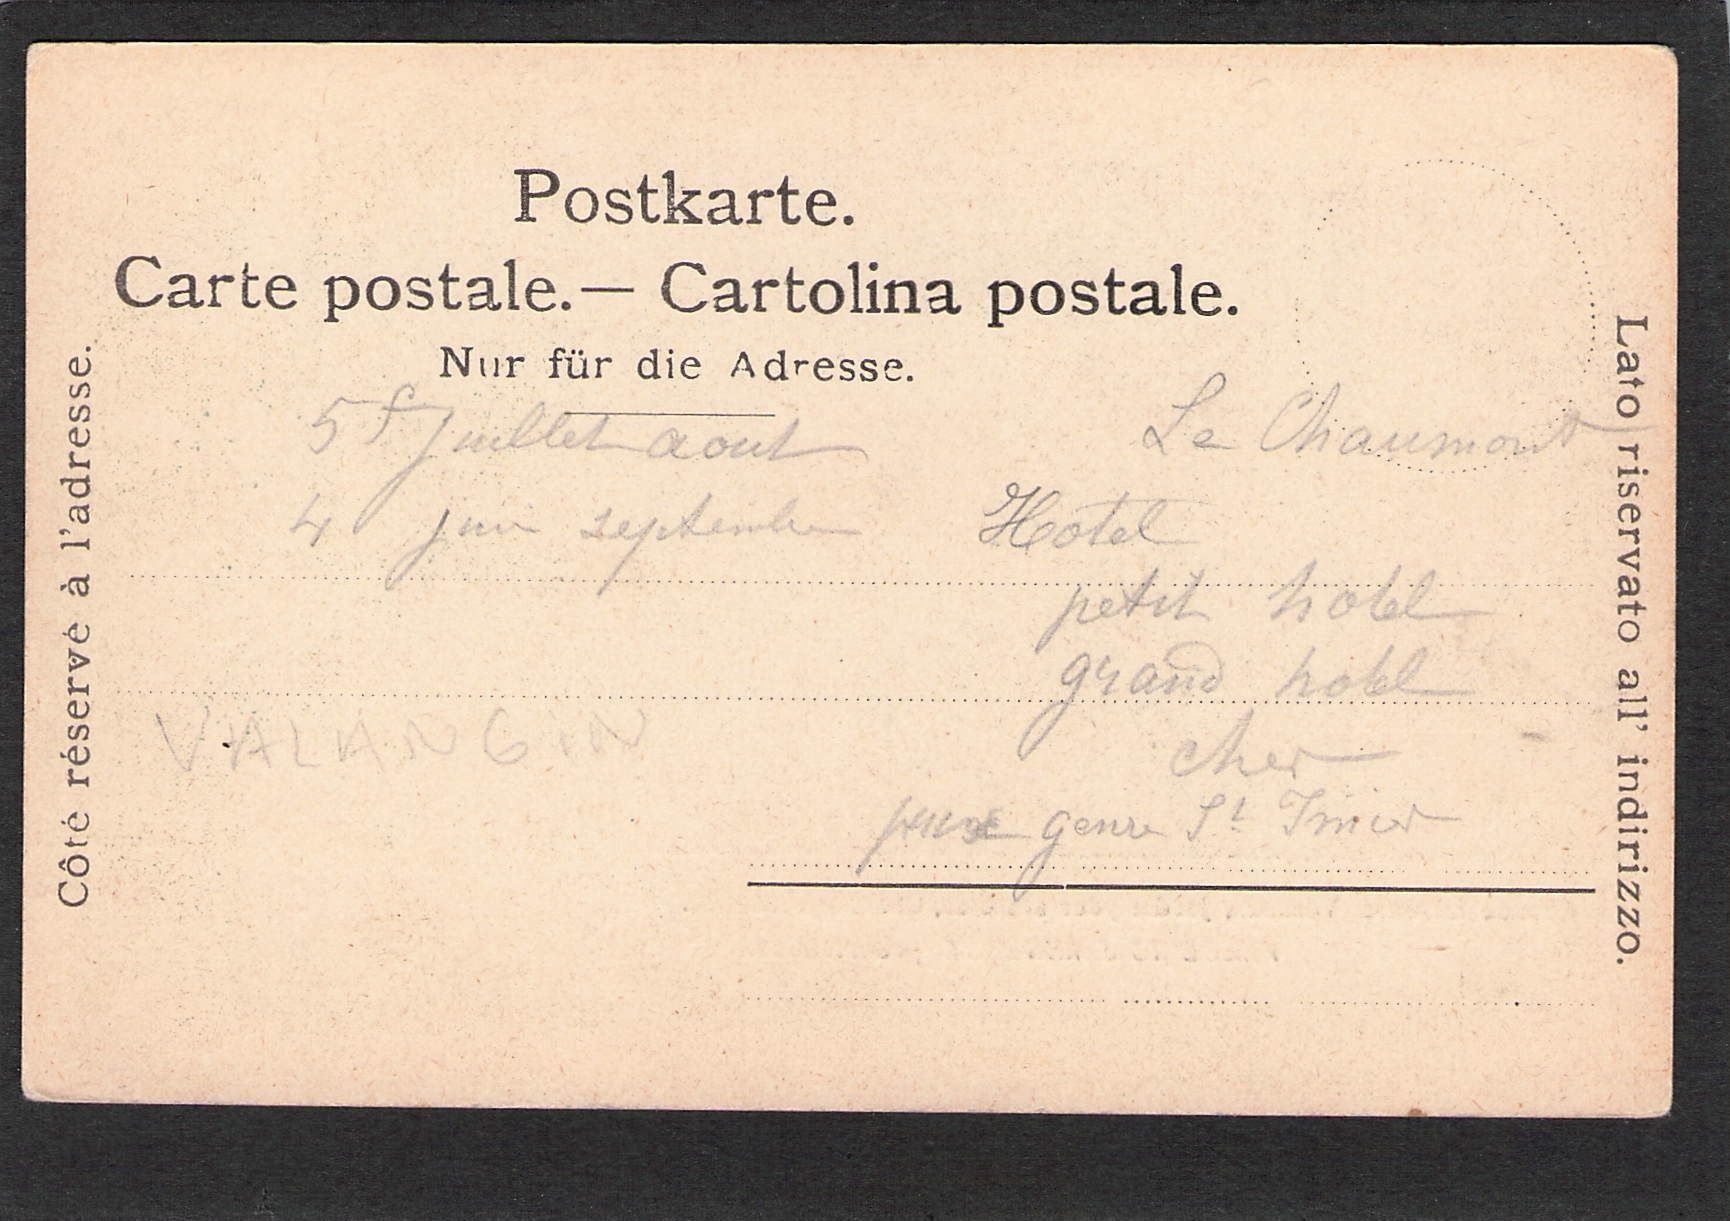 Postkarte.
Carte postale.— Cartolina postale.
Nur für die Adresse.
Côté réservé à l'adresse.
Lato riservato all' indirizzo.
5 f Juillet aout
4 juin septembre
Le Chaumont
Hotel
petit hotel
grand hotel
cher
genre St Imier
VALANGIN